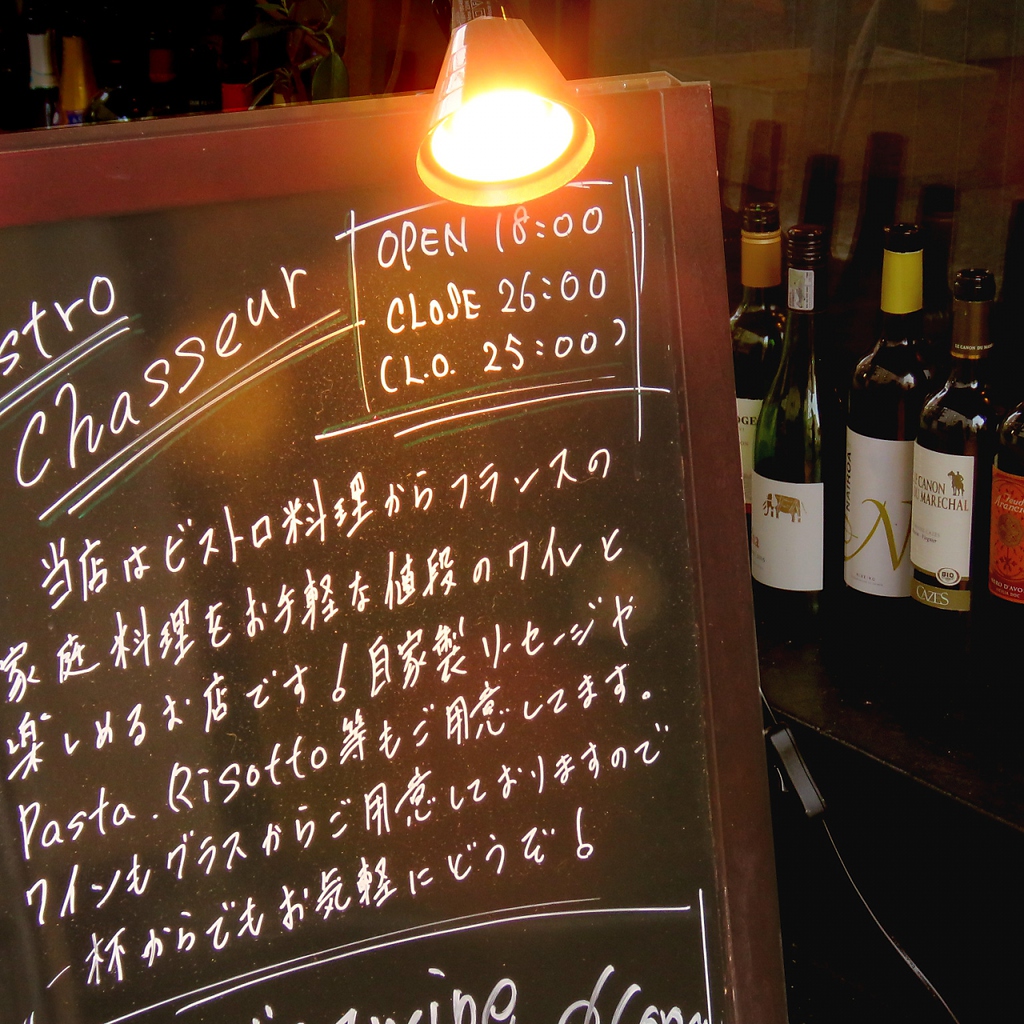 stro
Chasseur
OPEN 18:00
CLOSE 26:00
(L.O. 25:00)
当店はビストロ料理からフランスの
家庭料理をお手軽な値段のワインと
楽しめるお店です!自家製ソーセージや
Pasta.Risotto等もご用意してます。
ワインもグラスからご用意しておりますので
一杯からでもお気軽にどうぞ!
NAIROA
N
LE CANON
DU MARECHAL
BIO
CAZES